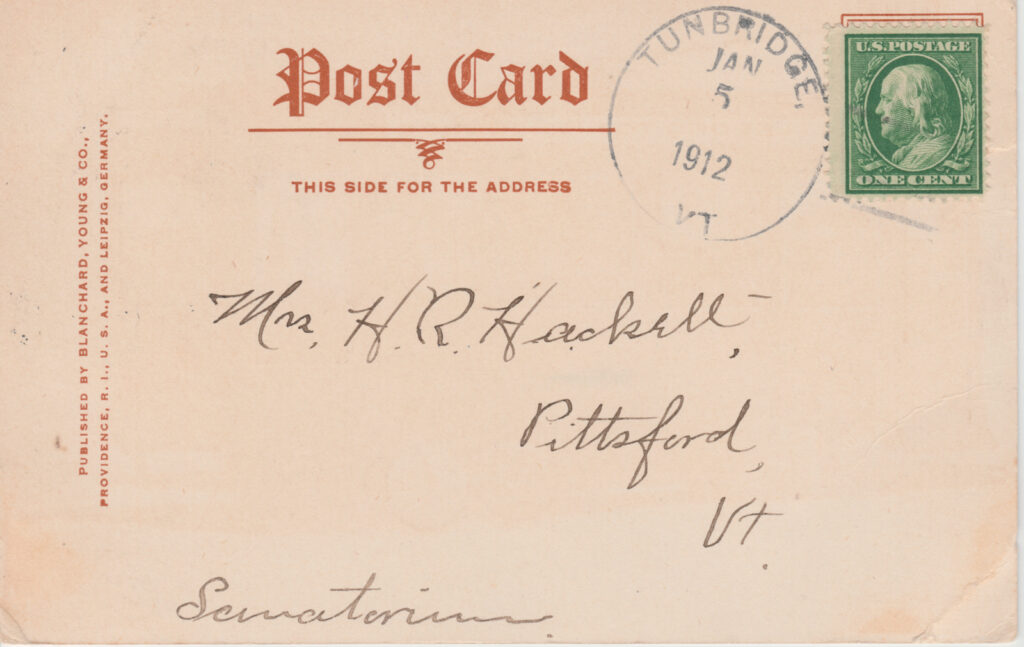 Post Card
THIS SIDE FOR THE ADDRESS
TUNBRIDGE,
JAN
5
1912
VT
U.S. POSTAGE
ONE CENT
PUBLISHED BY BLANCHARD, YOUNG & CO.,
PROVIDENCE, R. I., U. S. A., AND LEIPZIG, GERMANY.
Mrs. H. R. Hackett,
Pittsford,
Vt.
Sanatorium.